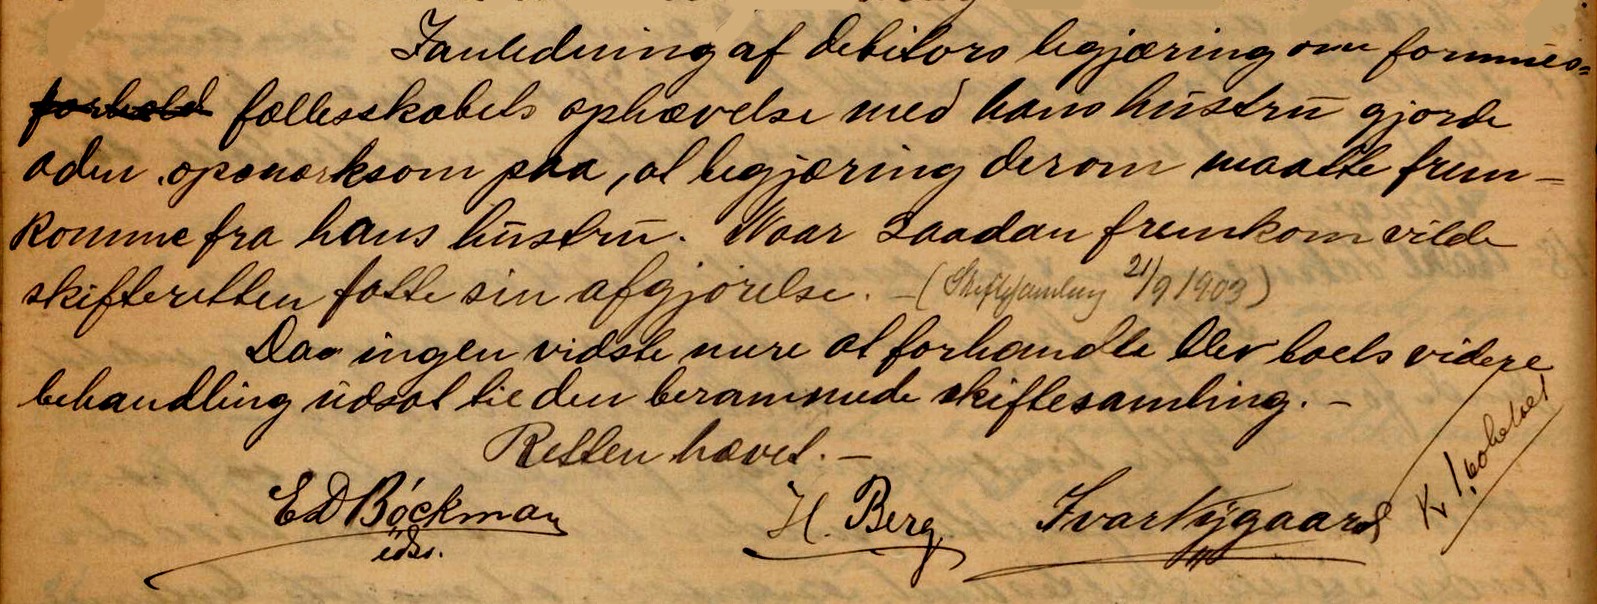 I anledning af debitors begjæring om formues-
forhold fællesskabets ophævelse med hans hustru gjorde
aden opmerksom paa, at begjæring derom maatte frem-
komme fra hans hustru. Naar saadan fremkom vilde
skifteretten fatte sin afgjørelse. – (Skiftesamling 21/9 1903)
Da ingen vidste mere at forhandle blev boets videre
behandling udsat til den berammede skiftesamling. –
Retten hævet. –
E D Bøckman H. Berg Ivar Nygaard
Kr 1,60 betalt